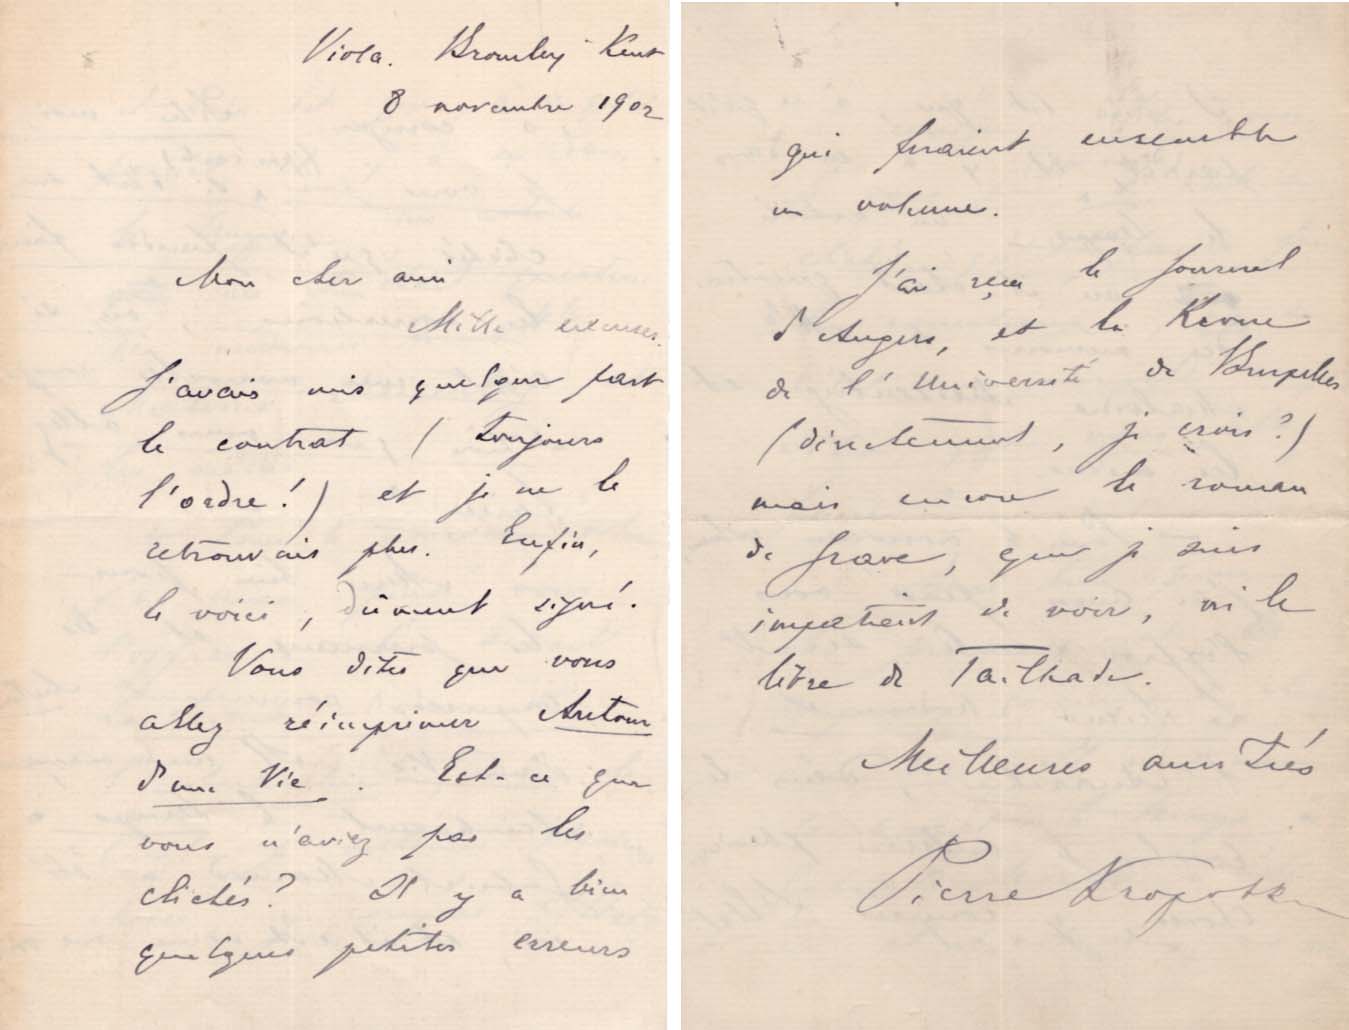 Viola. Bromley Kent
8 novembre 1902
Mon cher ami
Mille excuses.
J'avais mis quelque part
le contrat (toujours
l'ordre!) et je ne le
retrouvais plus. Enfin,
le voici, dûment signé.
Vous dites que vous
allez réimprimer Autour
d'une Vie. Est-ce que
vous n'aviez pas les
clichés? Il y a bien
quelques petites erreurs
qui feraient ensemble
un volume.
J'ai reçu le journal
d'Angers, et la Revue
de l'Université de Bruxelles
(directement, je crois?)
mais encore le roman
de Grave, que je suis
impatient de voir, ni le
livre de Tailhade.
Meilleures amitiés
Pierre Kropotkin